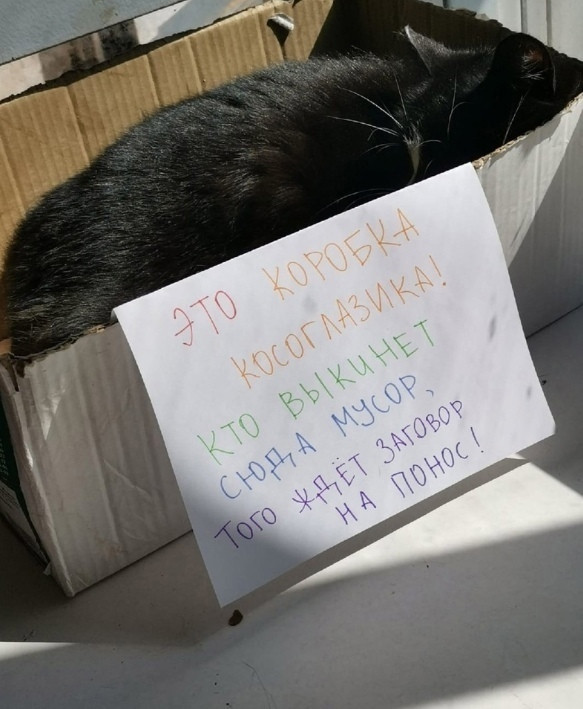 ЭТО КОРОБКА
КОСОГЛАЗИКА!
КТО ВЫКИНЕТ
СЮДА МУСОР,
ТОГО ЖДЁТ ЗАГОВОР
НА ПОНОС!